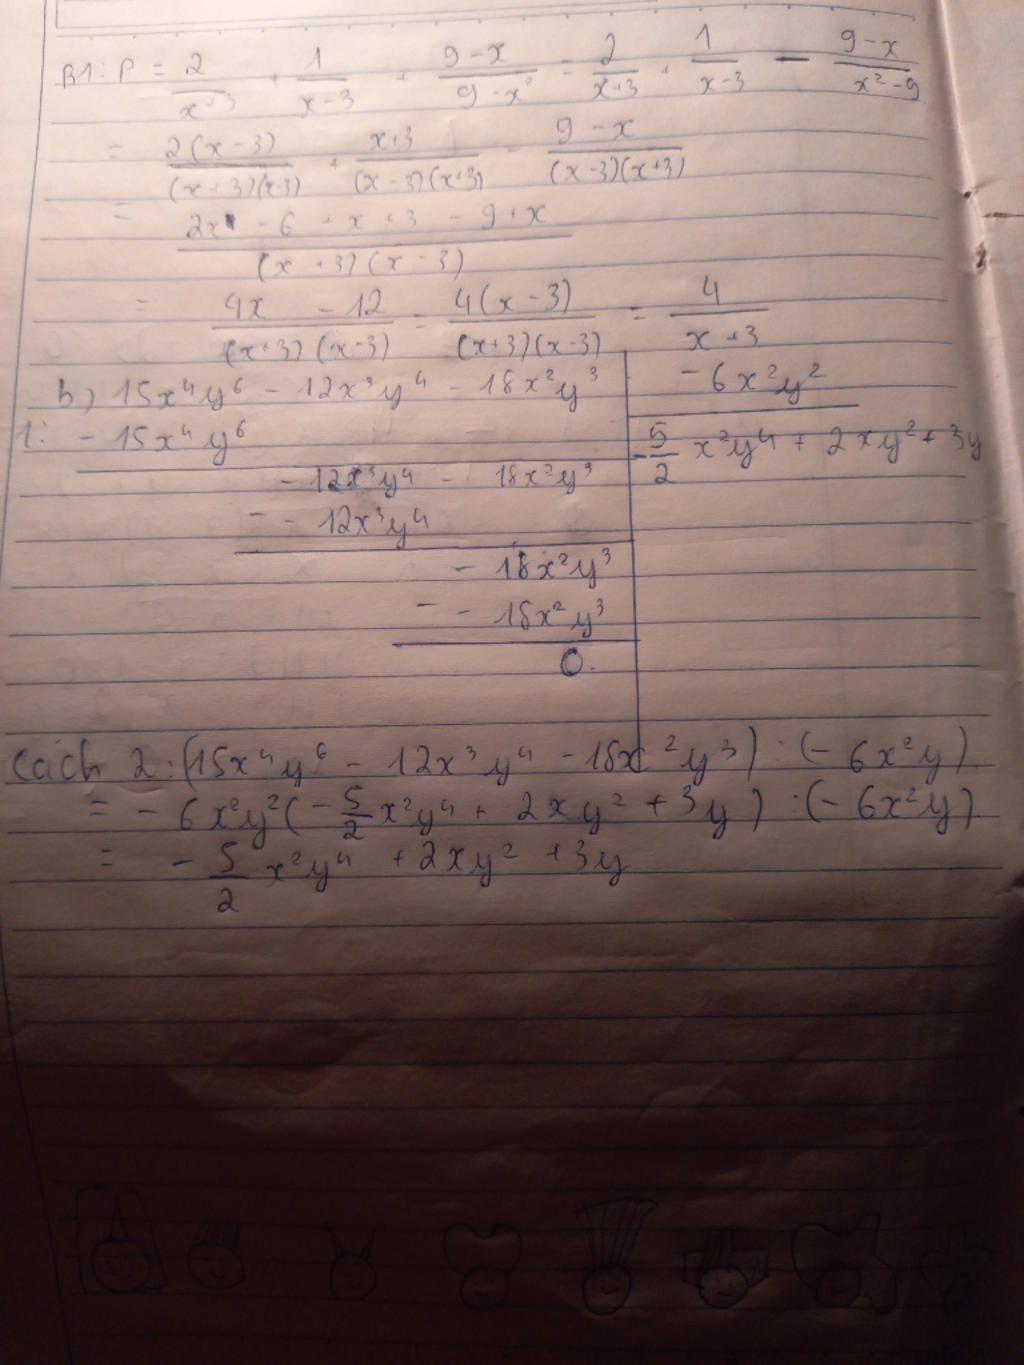 B1: P = 2/(x+3) + 1/(x-3) + (9-x)/(9-x²) = 2/(x+3) + 1/(x-3) - (9-x)/(x²-9)
= 2(x-3)/((x+3)(x-3)) + (x+3)/((x-3)(x+3)) - (9-x)/((x-3)(x+3))
= (2x - 6 + x + 3 - 9 + x)/((x+3)(x-3))
= (4x - 12)/((x+3)(x-3)) = 4(x-3)/((x+3)(x-3)) = 4/(x+3)
b) 15x⁴y⁶ - 12x³y⁴ - 18x²y³ | -6x²y²
1: - 15x⁴y⁶ | -5/2 x²y⁴ + 2xy² + 3y
- 12x³y⁴ - 18x²y³
- - 12x³y⁴
- 18x²y³
- - 18x²y³
0.
Cách 2: (15x⁴y⁶ - 12x³y⁴ - 18x²y³) : (-6x²y)
= -6x²y²(-5/2 x²y⁴ + 2xy² + 3y) : (-6x²y)
= -5/2 x²y⁴ + 2xy² + 3y